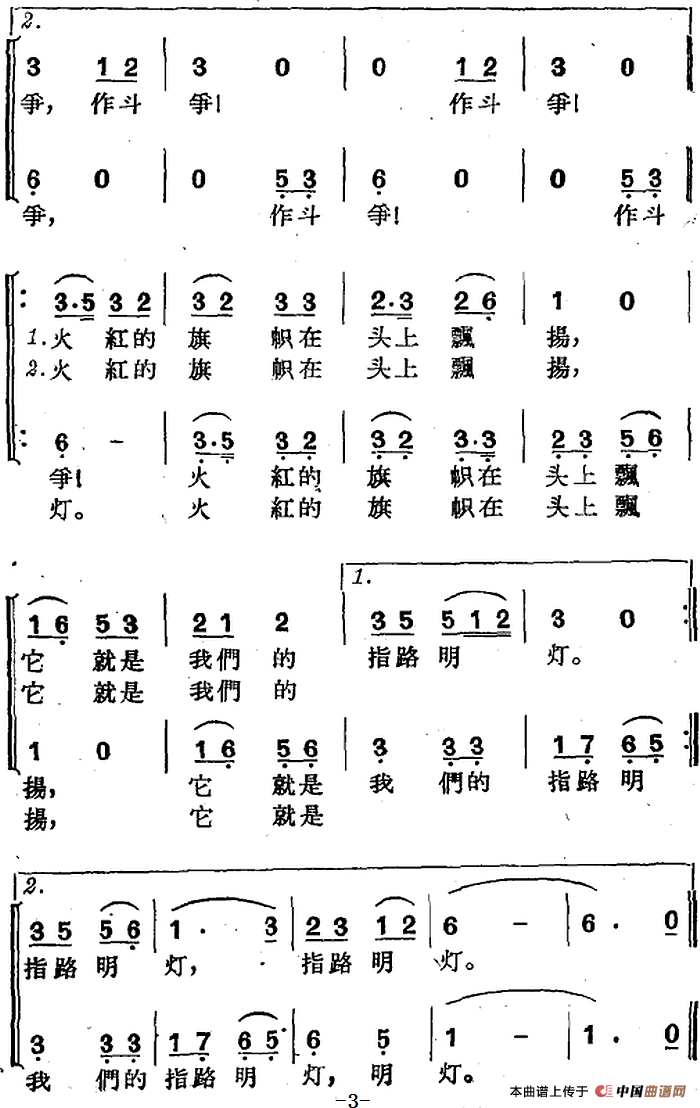 2.
3 1 2 3 0 0 1 2 3 0
爭, 作斗 爭! 作斗 爭!
6 0 0 5 3 6 0 0 5 3
爭, 作斗 爭! 作斗
3·5 3 2 3 2 3 3 2·3 2 6 1 0
1.火 紅的 旗 帜在 头上 飄 揚,
2.火 紅的 旗 帜在 头上 飄 揚,
6 - 3·5 3 2 3 2 3·3 2 3 5 6
爭! 火 紅的 旗 帜在 头上飄
灯。 火 紅的 旗 帜在 头上飄
1.
1 6 5 3 2 1 2 3 5 5 1 2 3 0
它 就是 我們 的 指路 明 灯。
它 就是 我們 的
1 0 1 6 5 6 3 3 3 1 7 6 5
揚, 它 就是 我 們的 指路 明
揚, 它 就是
2.
3 5 5 6 1· 3 2 3 1 2 6 - 6· 0
指路 明 灯, 指路 明 灯。
3 3 3 1 7 6 5· 6 5 1 - 1· 0
我 們的 指路 明 灯, 明 灯。
-3-
本曲谱上传于 中国曲谱网